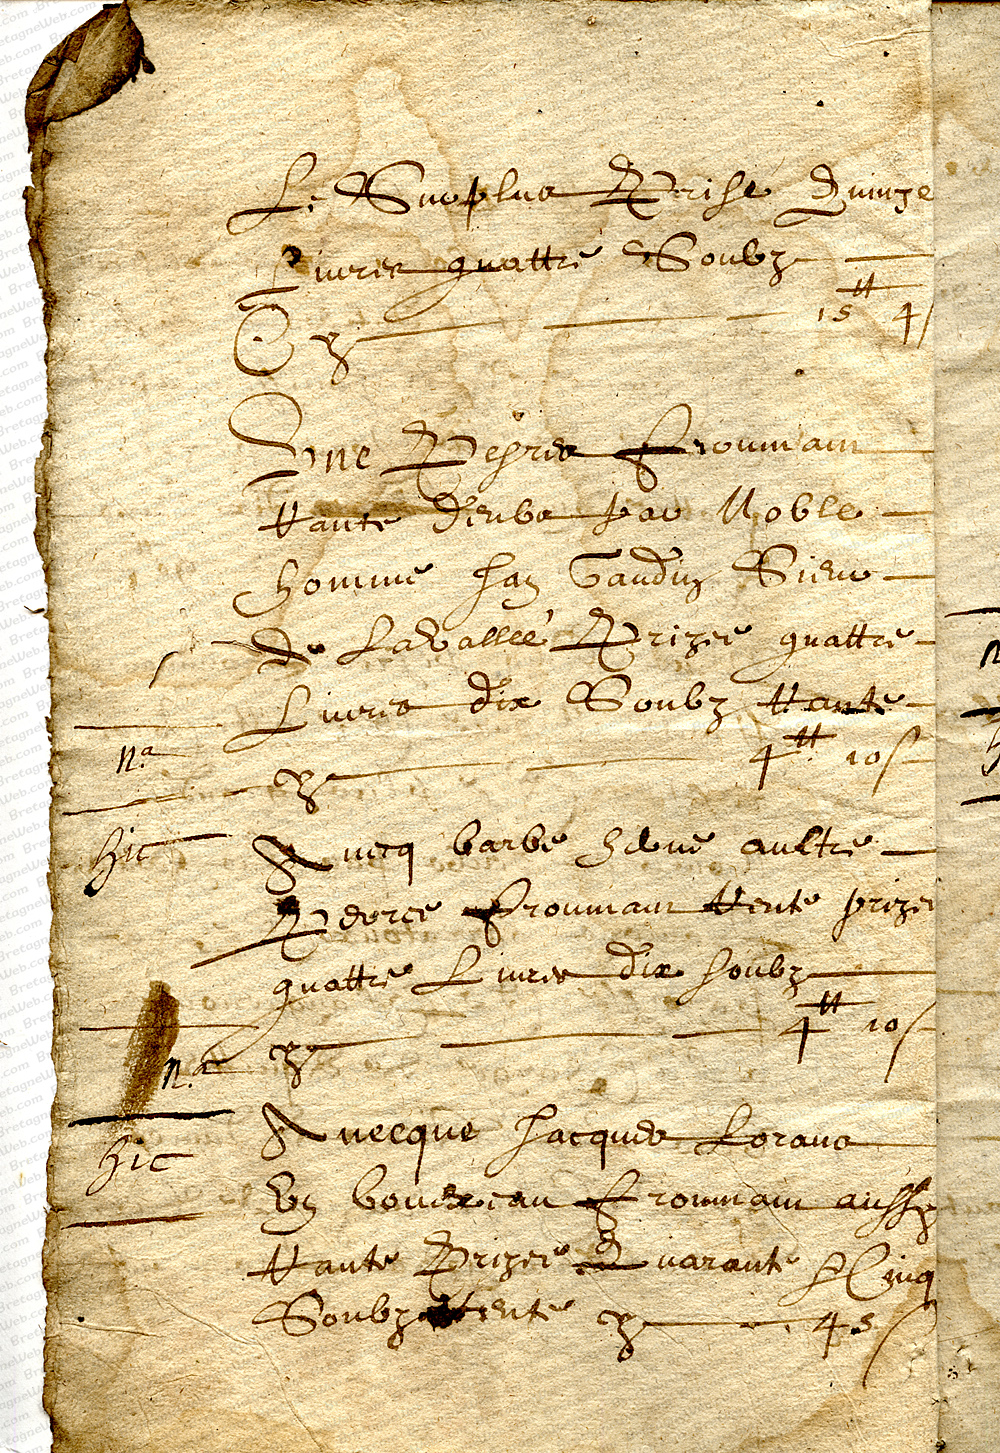 Le Surplus Prisé Quinze
Livres quattre Soubz
Cy 15 ₶ 4 s
Une Perée froumant
Vante deube par Noble
homme Jan Gaudin Sieur
de Lavallée Prizée quattre
Livres dix Soubz Vante
cy 4 ₶ 10 s
n.a
hic
Avecq barbe aultre
froumant Vente prizé
quattre Livres dix soubz
cy 4 ₶ 10 s
n.a
hic
Avecque Jacques Lorans
Un bouexeau froumant aussy
Vante Prizée Quarante Cinq
Soubz Vente cy 45 s